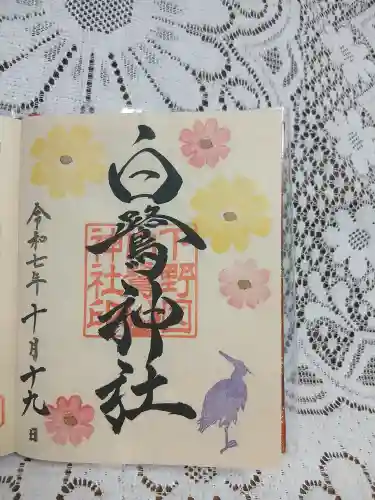 白鷺神社
下野国
白鷺
神社印
令和七年十月十九日